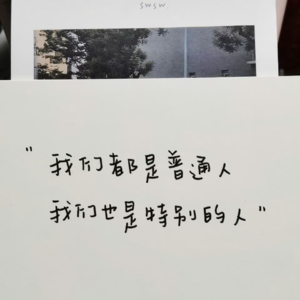 swsw
"我们都是普通人
我们也是特别的人"